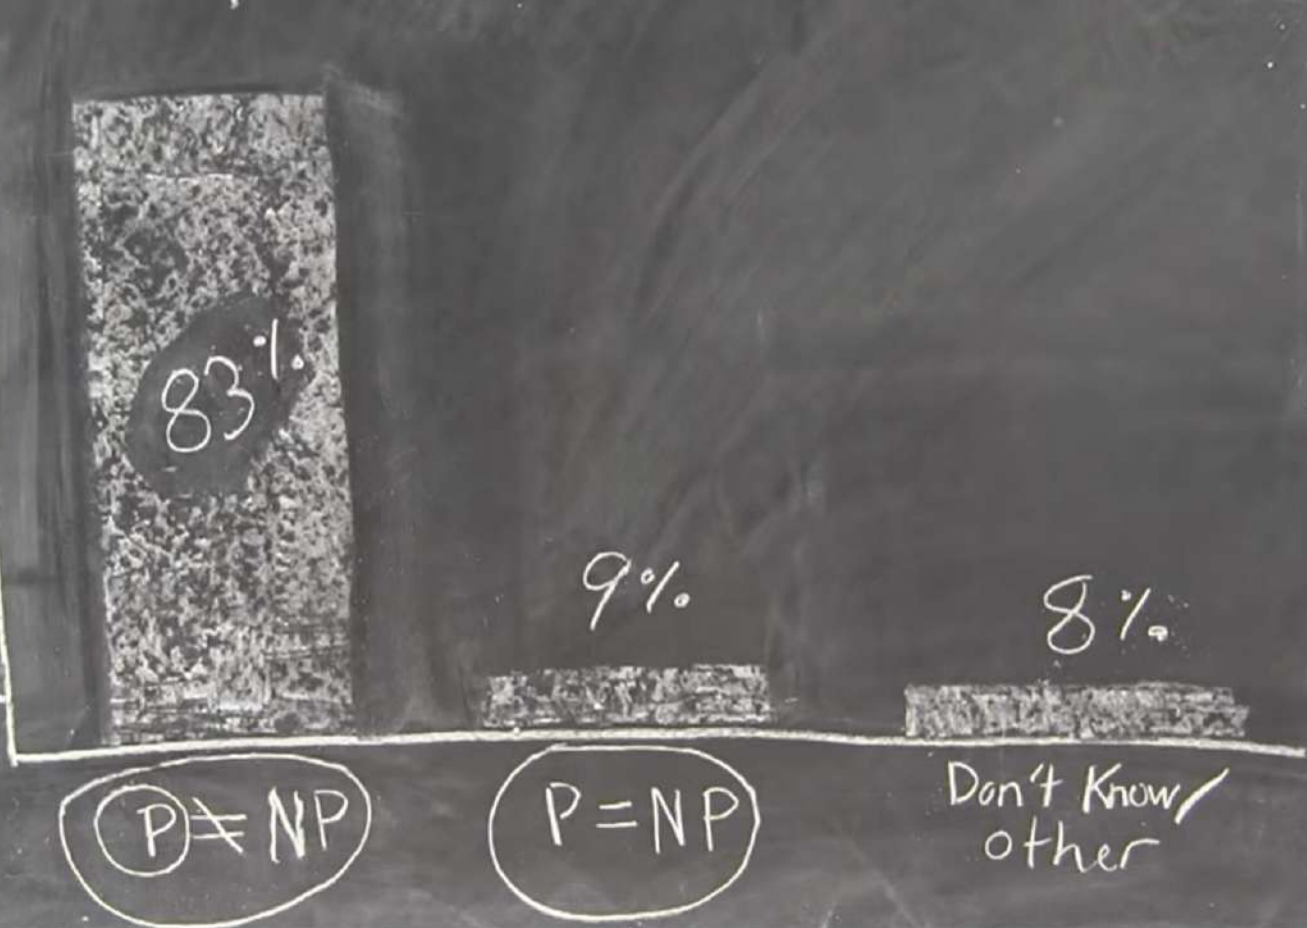 83%
9%
8%
P ≠ NP
P = NP
Don't Know/
other